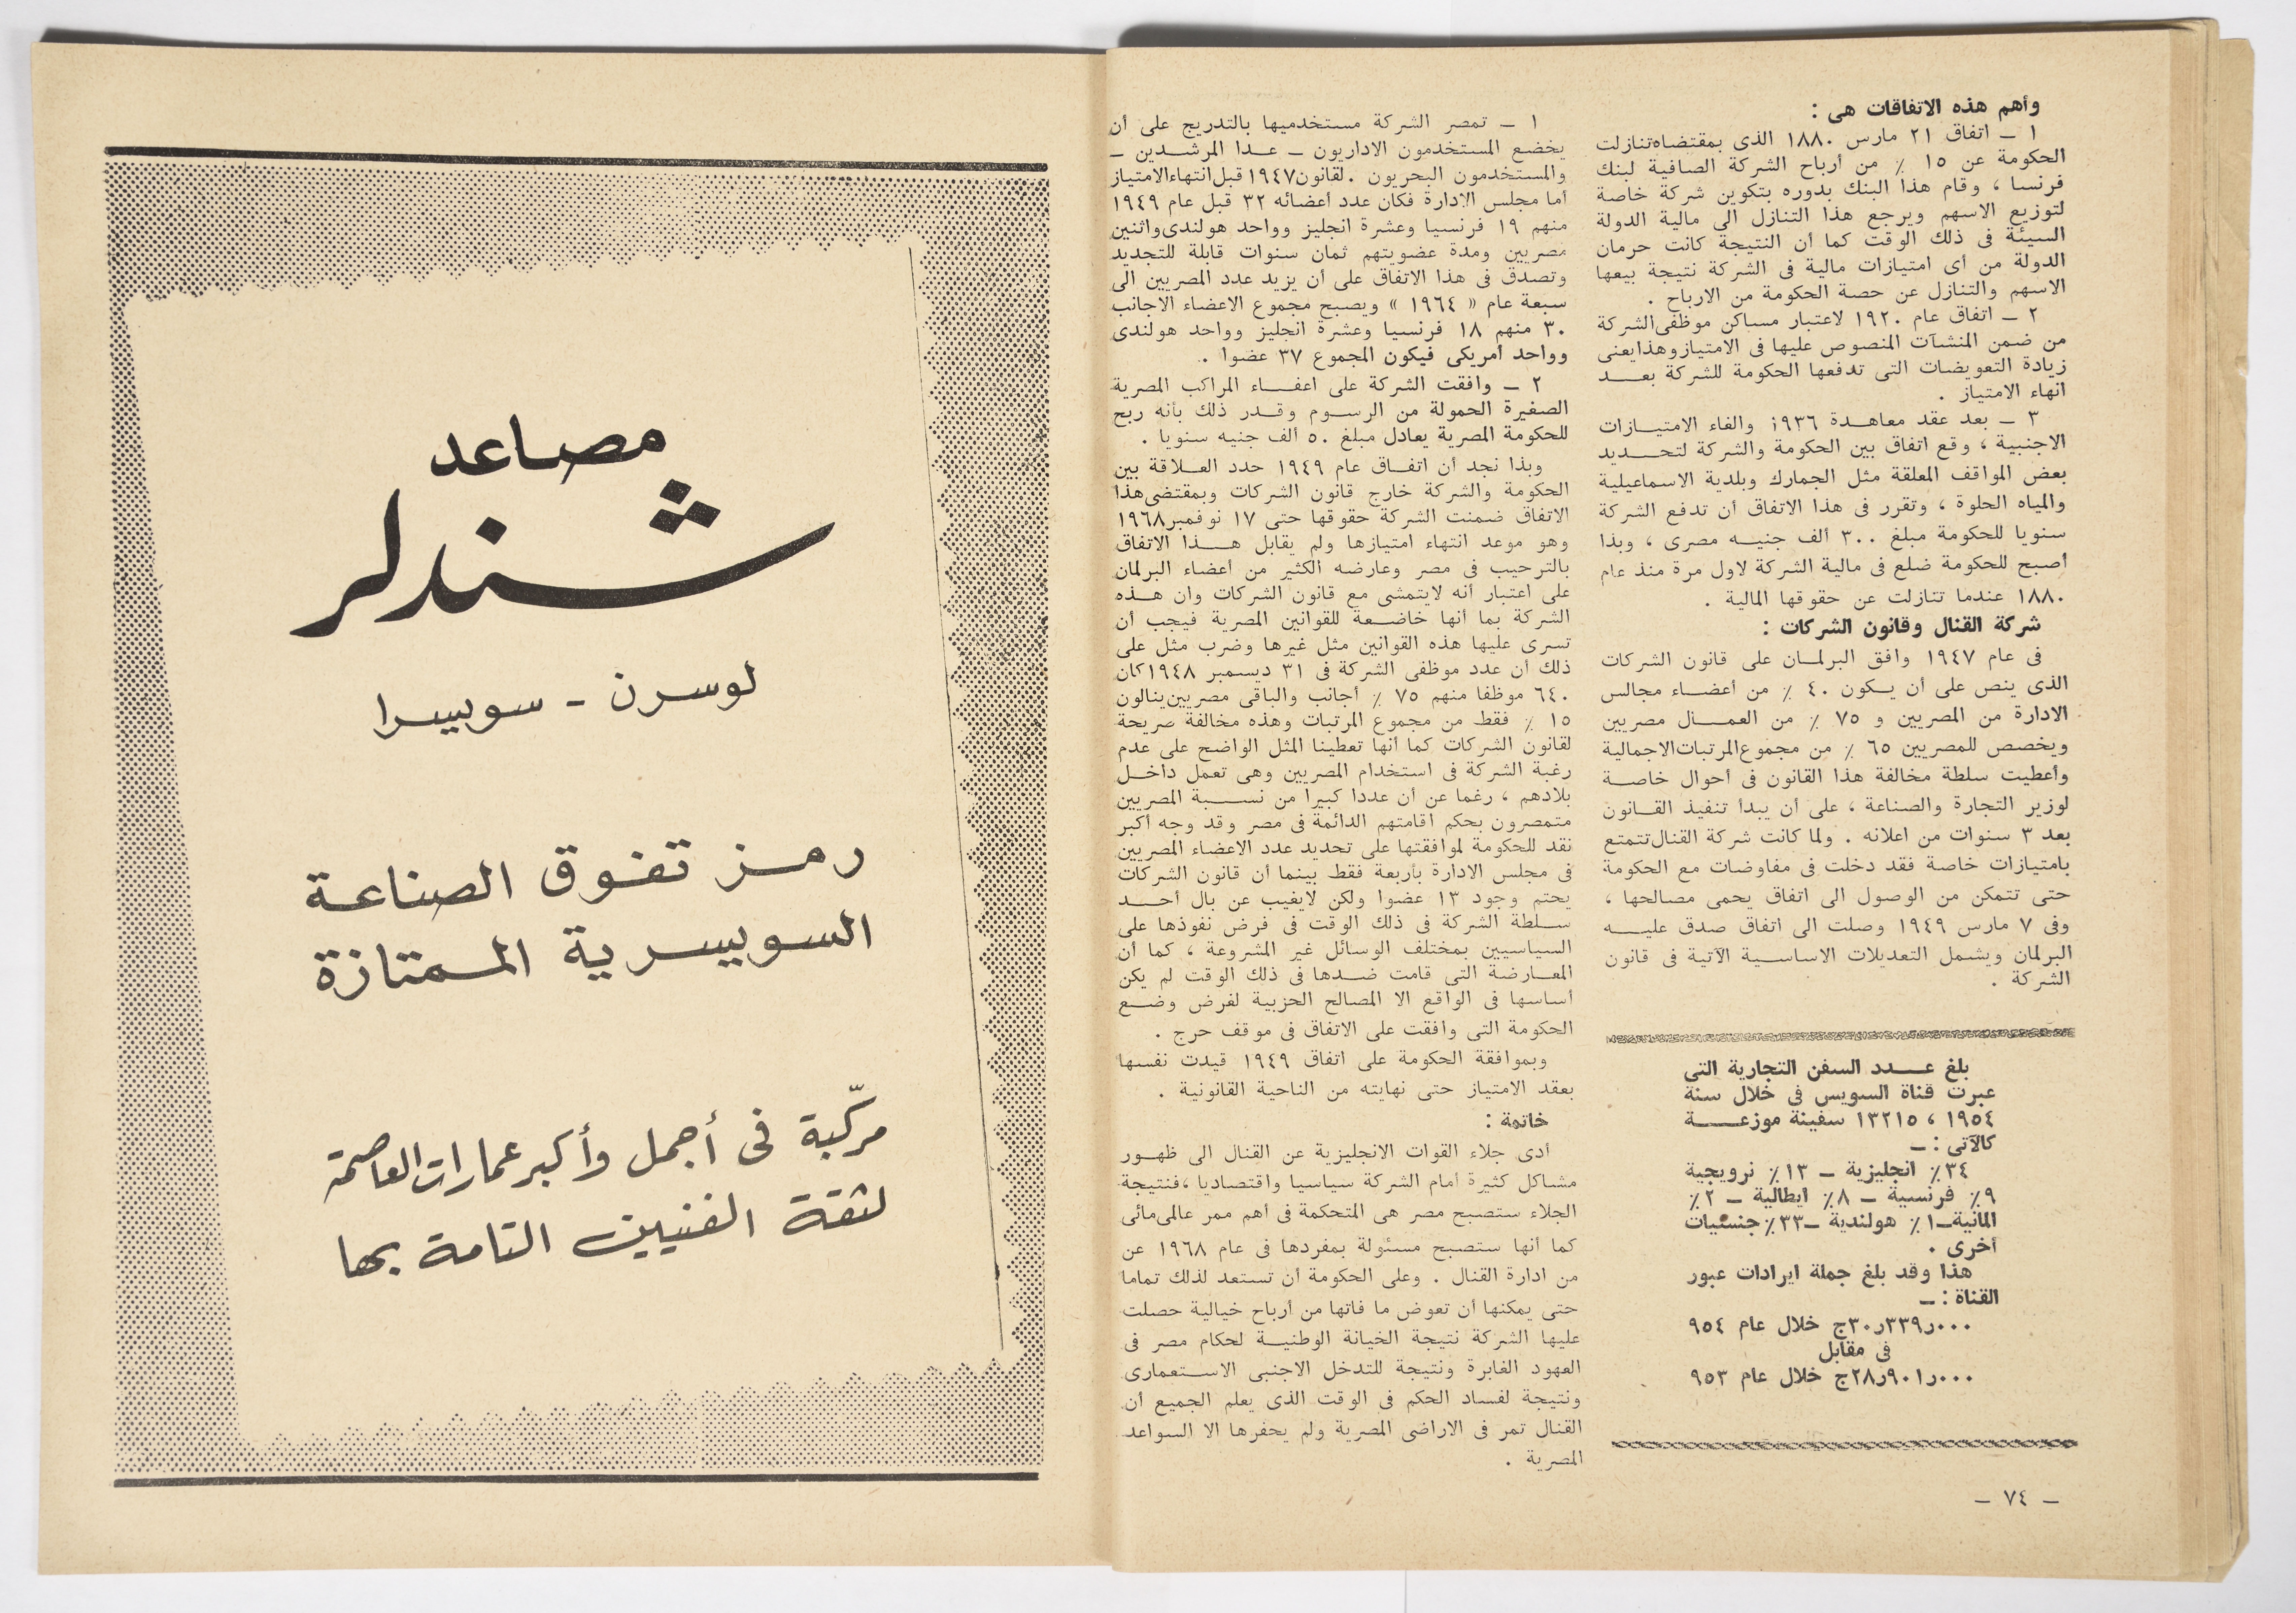 وأهم هذه الاتفاقات هى :
١ ـ اتفاق ٢١ مارس ١٨٨٠ الذى بمقتضاه تنازلت
الحكومة عن ١٥ ٪ من أرباح الشركة الصافية لبنك
فرنسا ، وقام هذا البنك بدوره بتكوين شركة خاصة
لتوزيع الاسهم ويرجع هذا التنازل الى مالية الدولة
السيئة فى ذلك الوقت كما أن النتيجة كانت حرمان
الدولة من أى امتيازات مالية فى الشركة نتيجة بيعها
الاسهم والتنازل عن حصة الحكومة من الارباح .
٢ ـ اتفاق عام ١٩٢٠ لاعتبار مساكن موظفى الشركة
من ضمن المنشآت المنصوص عليها فى الامتياز وهذا يعنى
زيادة التعويضات التى تدفعها الحكومة للشركة بعد
انهاء الامتياز .
٣ ـ بعد عقد معاهدة ١٩٣٦ والغاء الامتيازات
الاجنبية ، وقع اتفاق بين الحكومة والشركة لتحديد
بعض المواقف المعلقة مثل الجمارك وبلدية الاسماعيلية
والمياه الحلوة ، وتقرر فى هذا الاتفاق أن تدفع الشركة
سنويا للحكومة مبلغ ٣٠٠ ألف جنيه مصرى ، وبذا
أصبح للحكومة ضلع فى مالية الشركة لاول مرة منذ عام
١٨٨٠ عندما تنازلت عن حقوقها المالية .
شركة القنال وقانون الشركات :
فى عام ١٩٤٧ وافق البرلمان على قانون الشركات
الذى ينص على أن يكون ٤٠ ٪ من أعضاء مجالس
الادارة من المصريين و ٧٥ ٪ من العمال مصريين
ويخصص للمصريين ٦٥ ٪ من مجموع المرتبات الاجمالية
وأعطيت سلطة مخالفة هذا القانون فى أحوال خاصة
لوزير التجارة والصناعة ، على أن يبدأ تنفيذ القانون
بعد ٣ سنوات من اعلانه . ولما كانت شركة القنال تتمتع
بامتيازات خاصة فقد دخلت فى مفاوضات مع الحكومة
حتى تتمكن من الوصول الى اتفاق يحمى مصالحها ،
وفى ٧ مارس ١٩٤٩ وصلت الى اتفاق صدق عليه
البرلمان ويشمل التعديلات الاساسية الآتية فى قانون
الشركة .
بلغ عدد السفن التجارية التى
عبرت قناة السويس فى خلال سنة
١٩٥٤ ، ١٣٢١٥ سفينة موزعة
كالآتى : ـ
٣٤٪ انجليزية ـ ١٣٪ نرويجية
٩٪ فرنسية ـ ٨٪ ايطالية ـ ٢٪
المانية ـ ١٪ هولندية ـ ٣٣٪ جنسيات
أخرى .
هذا وقد بلغ جملة ايرادات عبور
القناة : ـ
٣٠ر٣٣٩ر٠٠٠ج خلال عام ٩٥٤
فى مقابل
٢٨ر٩٠١ر٠٠٠ج خلال عام ٩٥٣
ـ ٧٤ ـ
١ ـ تمصر الشركة مستخدميها بالتدريج على أن
يخضع المستخدمون الاداريون ـ عدا المرشدين ـ
والمستخدمون البحريون . لقانون ١٩٤٧ قبل انتهاء الامتياز
أما مجلس الادارة فكان عدد أعضائه ٣٢ قبل عام ١٩٤٩
منهم ١٩ فرنسيا وعشرة انجليز وواحد هولندى واثنين
مصريين ومدة عضويتهم ثمان سنوات قابلة للتجديد
وتصدق فى هذا الاتفاق على أن يزيد عدد المصريين الى
سبعة عام « ١٩٦٤ » ويصبح مجموع الاعضاء الاجانب
٣٠ منهم ١٨ فرنسيا وعشرة انجليز وواحد هولندى
وواحد أمريكى فيكون المجموع ٣٧ عضوا .
٢ ـ وافقت الشركة على اعفاء المراكب المصرية
الصغيرة الحمولة من الرسوم وقدر ذلك بأنه ربح
للحكومة المصرية يعادل مبلغ ٥٠ ألف جنيه سنويا .
وبذا نجد أن اتفاق عام ١٩٤٩ حدد العلاقة بين
الحكومة والشركة خارج قانون الشركات وبمقتضى هذا
الاتفاق ضمنت الشركة حقوقها حتى ١٧ نوفمبر ١٩٦٨
وهو موعد انتهاء امتيازها ولم يقابل هذا الاتفاق
بالترحيب فى مصر وعارضه الكثير من أعضاء البرلمان
على اعتبار أنه لايتمشى مع قانون الشركات وان هذه
الشركة بما أنها خاضعة للقوانين المصرية فيجب أن
تسرى عليها هذه القوانين مثل غيرها وضرب مثل على
ذلك أن عدد موظفى الشركة فى ٣١ ديسمبر ١٩٤٨ كان
٦٤٠ موظفا منهم ٧٥ ٪ أجانب والباقى مصريين ينالون
١٥ ٪ فقط من مجموع المرتبات وهذه مخالفة صريحة
لقانون الشركات كما أنها تعطينا المثل الواضح على عدم
رغبة الشركة فى استخدام المصريين وهى تعمل داخل
بلادهم ، رغما عن أن عددا كبيرا من نسبة المصريين
متمصرون بحكم اقامتهم الدائمة فى مصر وقد وجه أكبر
نقد للحكومة لموافقتها على تحديد عدد الاعضاء المصريين
فى مجلس الادارة بأربعة فقط بينما أن قانون الشركات
يحتم وجود ١٣ عضوا ولكن لايغيب عن بال أحد
سلطة الشركة فى ذلك الوقت فى فرض نفوذها على
السياسيين بمختلف الوسائل غير المشروعة ، كما أن
المعارضة التى قامت ضدها فى ذلك الوقت لم يكن
أساسها فى الواقع الا المصالح الحزبية لفرض وضع
الحكومة التى وافقت على الاتفاق فى موقف حرج .
وبموافقة الحكومة على اتفاق ١٩٤٩ قيدت نفسها
بعقد الامتياز حتى نهايته من الناحية القانونية .
خاتمة :
أدى جلاء القوات الانجليزية عن القنال الى ظهور
مشاكل كثيرة أمام الشركة سياسيا واقتصاديا ، فنتيجة
الجلاء ستصبح مصر هى المتحكمة فى أهم ممر عالمى مائى
كما أنها ستصبح مسئولة بمفردها فى عام ١٩٦٨ عن
من ادارة القنال . وعلى الحكومة أن تستعد لذلك تماما
حتى يمكنها أن تعوض ما فاتها من أرباح خيالية حصلت
عليها الشركة نتيجة الخيانة الوطنية لحكام مصر فى
العهود الغابرة ونتيجة للتدخل الاجنبى الاستعمارى
ونتيجة لفساد الحكم فى الوقت الذى يعلم الجميع أن
القنال تمر فى الاراضى المصرية ولم يحفرها الا السواعد
المصرية .
مصاعد
شندلر
لوسرن - سويسرا
رمز تفوق الصناعة
السويسرية الممتازة
مركّبة فى أجمل وأكبر عمارات العاصمة
لثقة الفنيين التامة بها